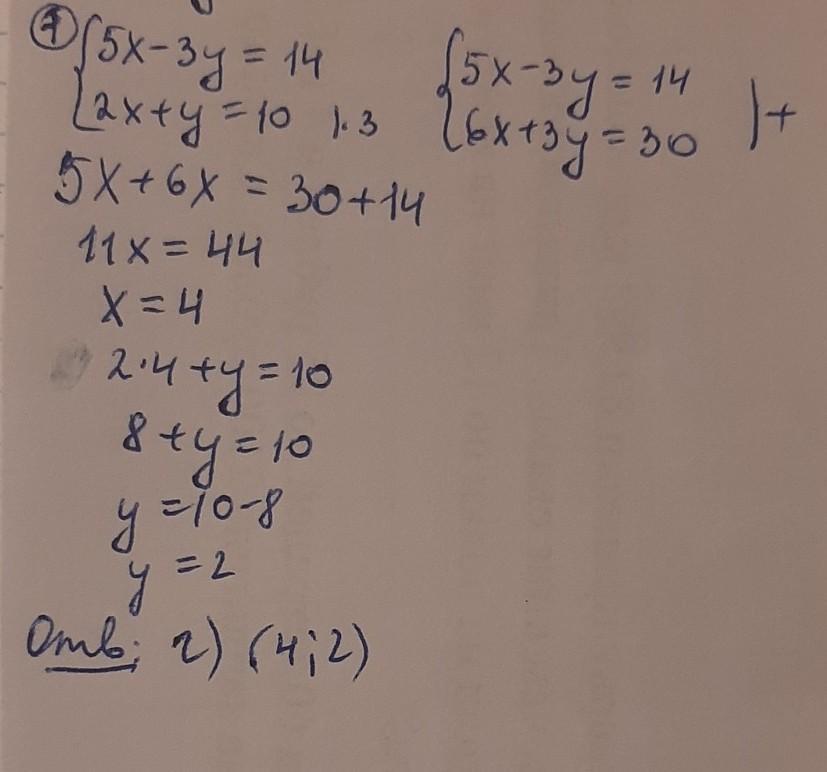 7 { 5x-3y=14
2x+y=10 |·3
{ 5x-3y=14
6x+3y=30 |+
5x+6x=30+14
11x=44
x=4
2·4+y=10
8+y=10
y=10-8
y=2
Отв: г) (4;2)